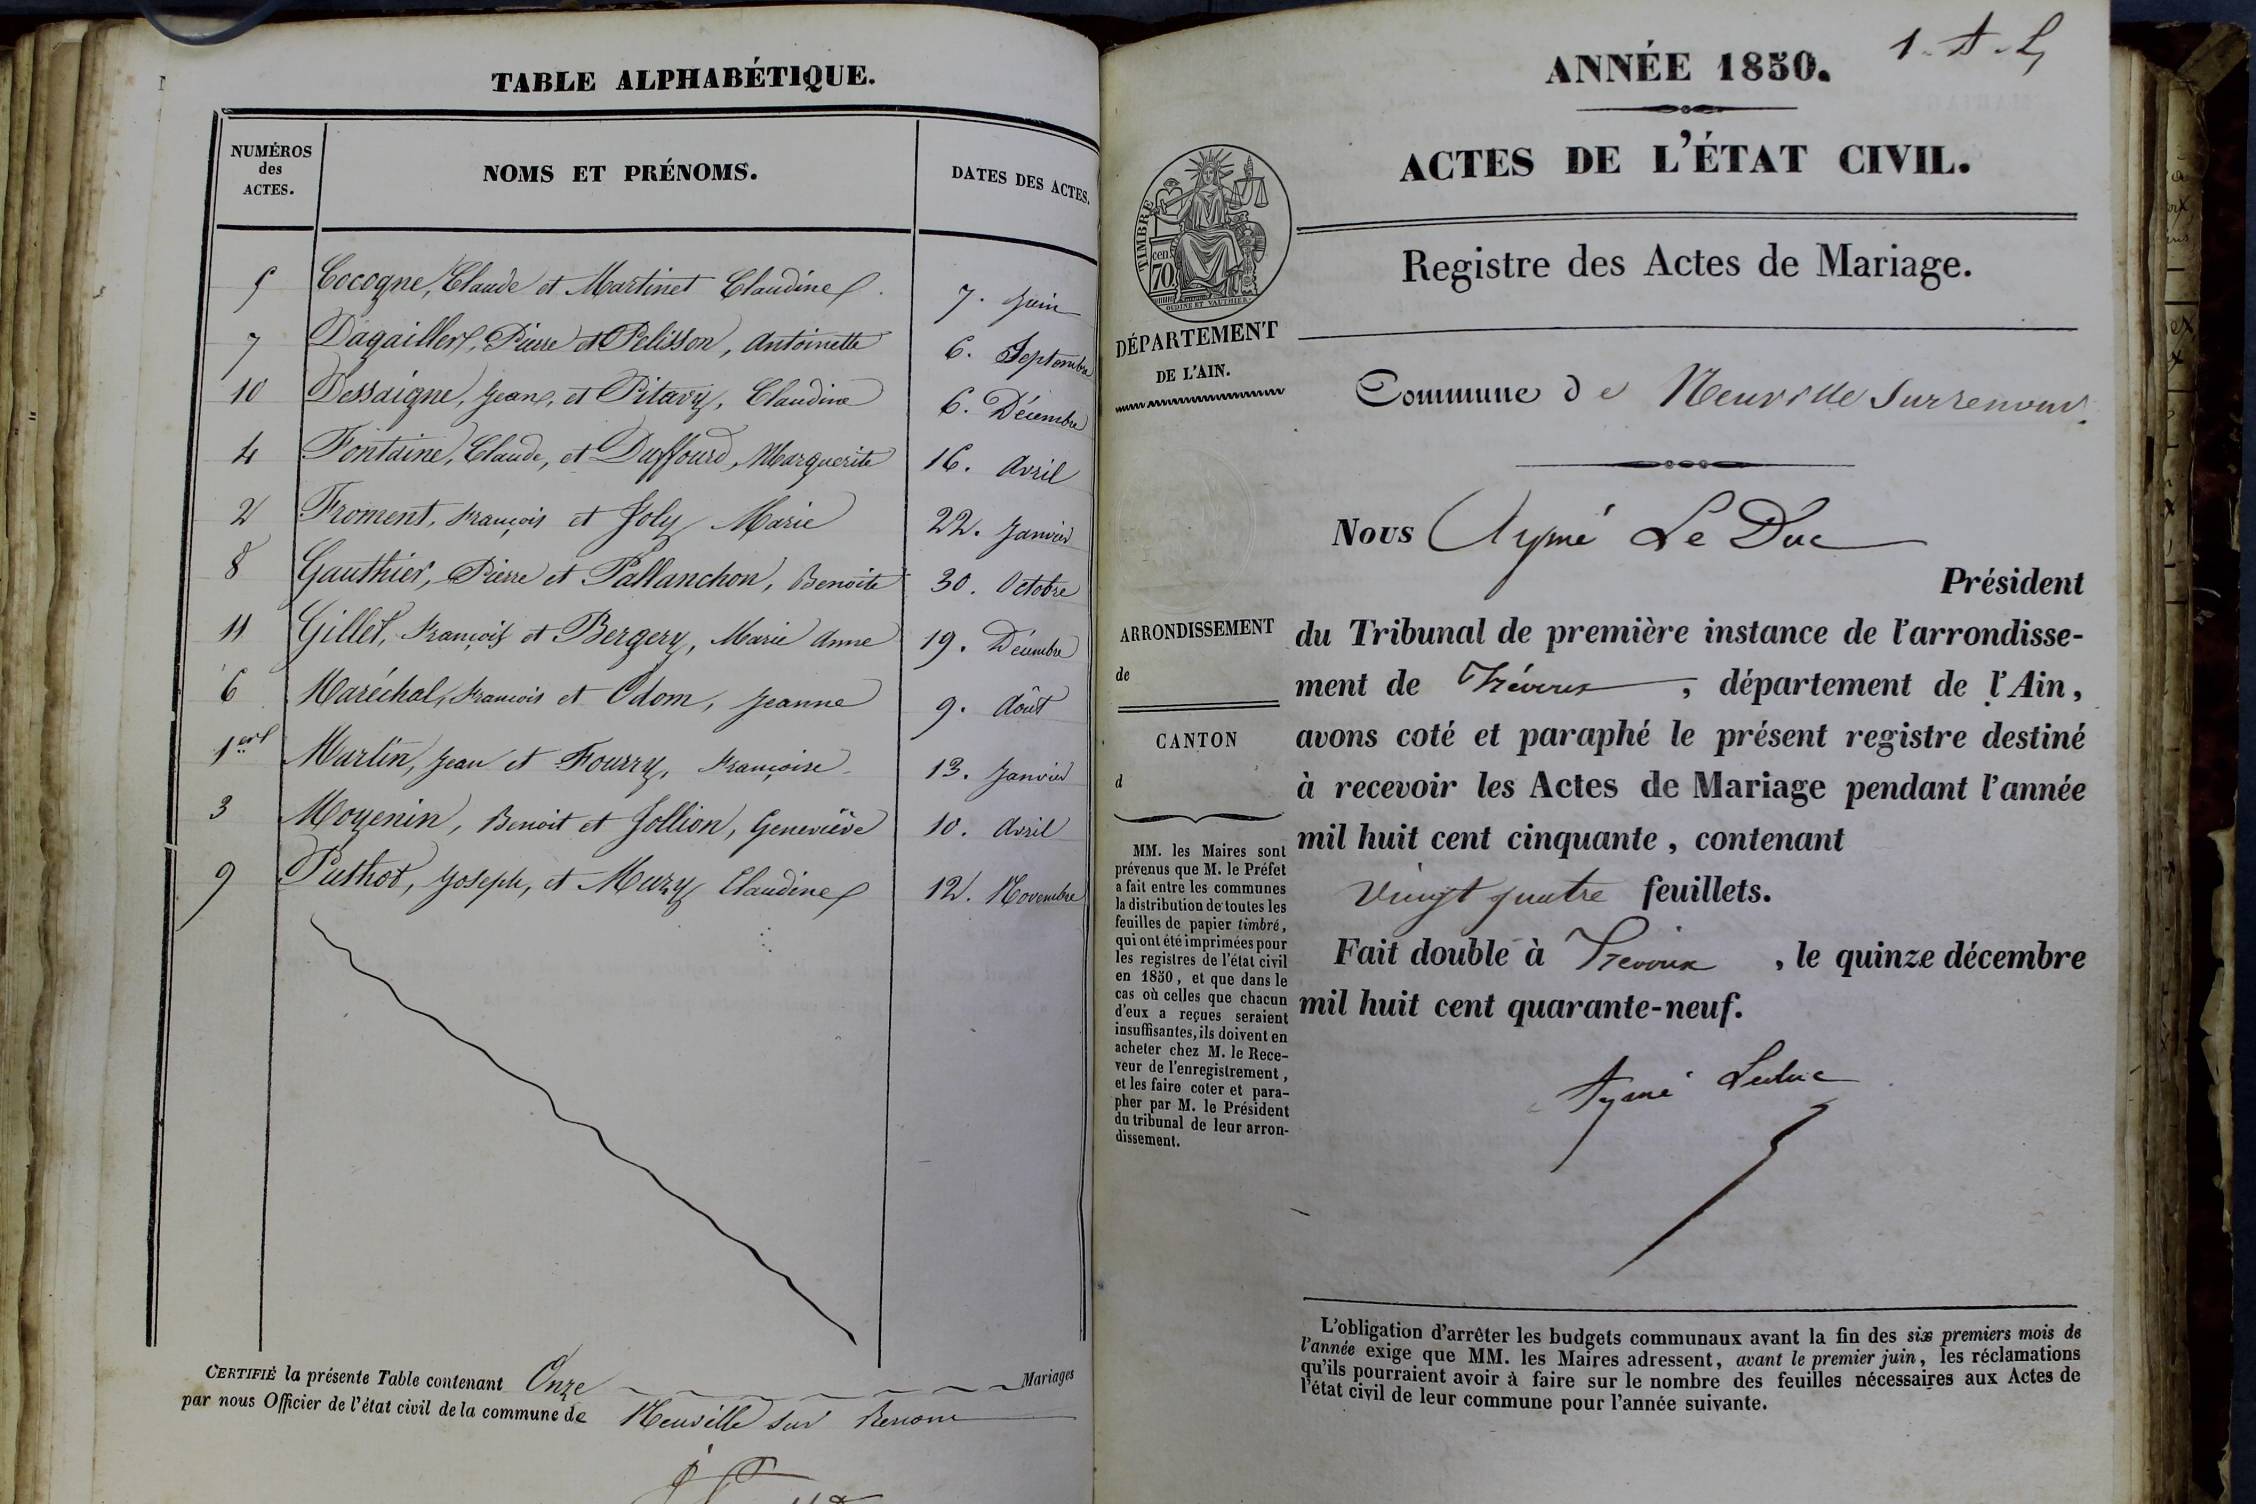 TABLE ALPHABÉTIQUE.
NUMÉROS
des
ACTES.
NOMS ET PRÉNOMS.
DATES DES ACTES.
5 Cocogne, Claude et Martinet Claudine 7. Juin
7 Dagallier, Pierre et Pelisson, Antoinette 6. Septembre
10 Dessaigne, Jean, et Pitavy, Claudine 6. Décembre
4 Fontaine, Claude, et Duffourd, Marguerite 16. Avril
2 Froment, François et Joly Marie 22. Janvier
8 Gauthier, Pierre et Pallanchon, Benoite 30. Octobre
11 Gillet, François et Bergery, Marie Anne 19. Décembre
6 Maréchal, François et Odom, Jeanne 9. Août
1er Martin, Jean et Fourry, Françoise 13. Janvier
3 Moyenin, Benoit et Jollion, Geneviève 10. Avril
9 Puthod, Joseph, et Muzy Claudine 12. Novembre
CERTIFIÉ la présente Table contenant Onze Mariages
par nous Officier de l'état civil de la commune de Neuville sur Renom
1. A. L.
ANNÉE 1850.
ACTES DE L'ÉTAT CIVIL.
Registre des Actes de Mariage.
TIMBRE
70 cen.
OUDINÉ ET VAUTHIER
DÉPARTEMENT
DE L'AIN.
Commune de Neuville sur renom.
Nous Aymé Le Duc
Président
du Tribunal de première instance de l'arrondisse-
ment de Trévoux, département de l'Ain,
avons coté et paraphé le présent registre destiné
à recevoir les Actes de Mariage pendant l'année
mil huit cent cinquante, contenant
Vingt quatre feuillets.
Fait double à Trevoux, le quinze décembre
mil huit cent quarante-neuf.
Aymé Leduc
ARRONDISSEMENT
de
CANTON
d
MM. les Maires sont
prévenus que M. le Préfet
a fait entre les communes
la distribution de toutes les
feuilles de papier timbré,
qui ont été imprimées pour
les registres de l'état civil
en 1850, et que dans le
cas où celles que chacun
d'eux a reçues seraient
insuffisantes, ils doivent en
acheter chez M. le Rece-
veur de l'enregistrement,
et les faire coter et para-
pher par M. le Président
du tribunal de leur arron-
dissement.
L'obligation d'arrêter les budgets communaux avant la fin des six premiers mois de
l'année exige que MM. les Maires adressent, avant le premier juin, les réclamations
qu'ils pourraient avoir à faire sur le nombre des feuilles nécessaires aux Actes de
l'état civil de leur commune pour l'année suivante.